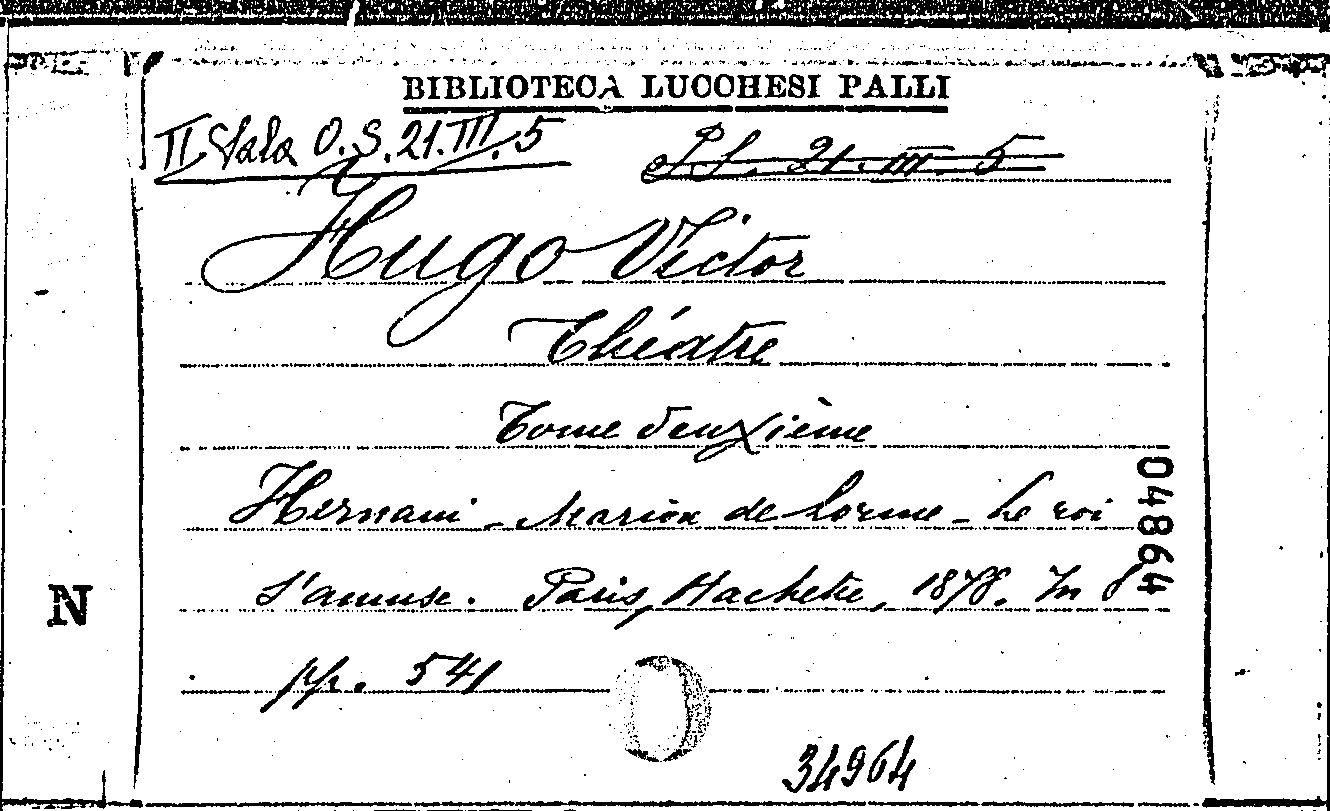 BIBLIOTECA LUCCHESI PALLI
II Sala O.S. 21. III. 5
21. III. 5
Hugo Victor
Théatre
Tome deuxième
Hernani - Marion de Lorme - Le roi
s'amuse. Paris, Hachette, 1878. In 8
pp. 541
34964
04864
N